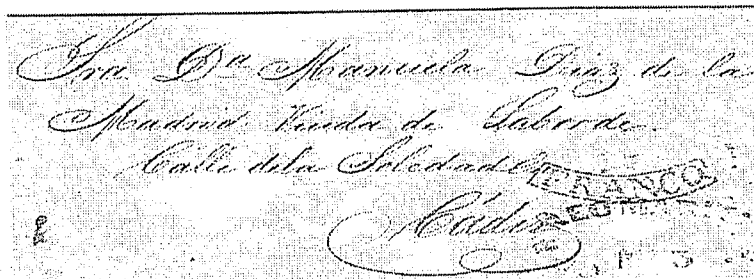 Sra. Dª Manuela Diaz de la
Madrid Viuda de Laborde
Calle de la Soledad
FRANCO
Cádiz